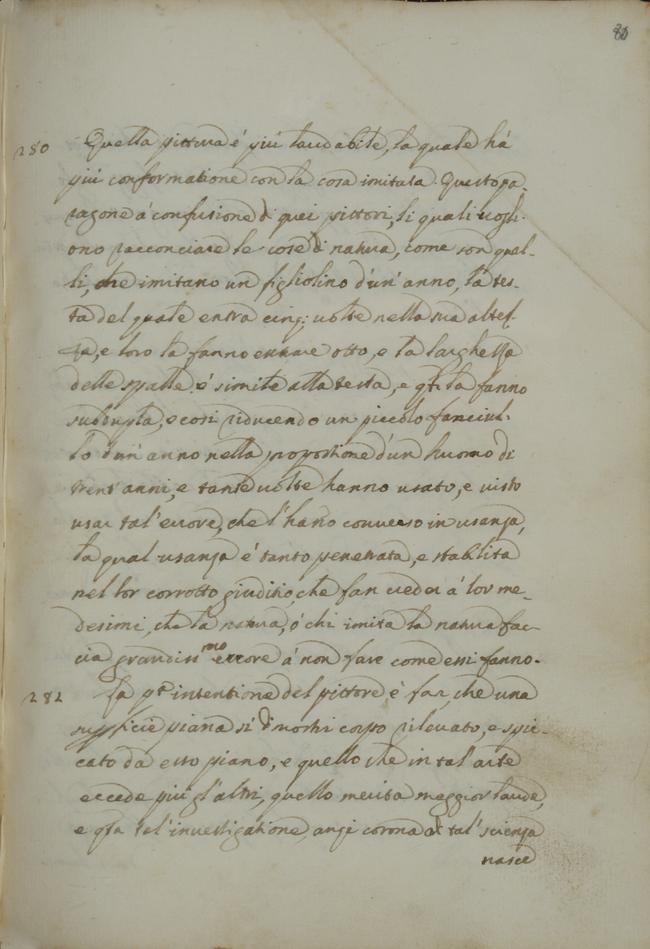 280 Quella pittura é piú laudabile, la quale há
piú conformatione con la cosa imitata. Questo pa-
ragone á confusione di quei pittori, li quali vogli-
ono racconciare le cose di natura, come son quel-
li, che imitano un figliolino d'un'anno, la tes-
ta del quale entra cinq; volte nella sua altez-
za, e loro la fanno entrare otto, e la larghezza
delle spalle é simile alla testa, e qti la fanno
subdupla, e cosi riducendo un piccolo fanciul-
lo d'un'anno nella proportione d'un huomo di
trent'anni, e tante volte hanno usato, e visto
usar tal'errore, che l'hano converso in usanza,
la qual usanza é tanto penetrata, e stablita
nel lor corrotto giuditio, che fan creder á lor me-
desimi, che la natura, ó chi imita la natura fac-
cia grandissmo errore á non fare come essi fanno.
282 La pa intentione del pittore é far, che una
superficie piana si dimostri corpo rilevato, e spic-
cato da esso piano, e quello che in tal'arte
eccede piú gl'altri, quello merita maggior laude,
e qta tal'investigatione, anzi corona di tal'scienza
nasce